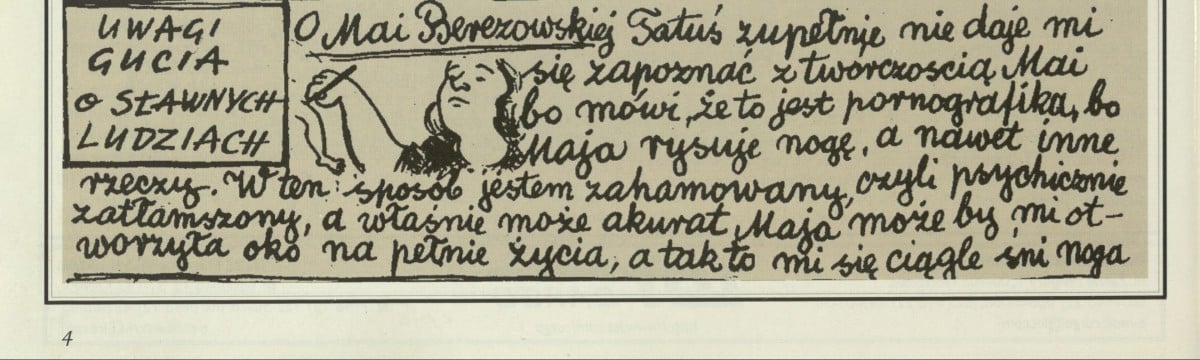 UWAGI
GUCIA
o SŁAWNYCH
LUDZIACH
O Mai Berezowskiej Tatuś zupełnie nie daje mi
się zapoznać z twórczoscią Mai
bo mówi, że to jest pornografika, bo
Maja rysuje nogę, a nawet inne
rzeczy. W ten sposób jestem zahamowany, czyli psychicznie
zatłamszony, a właśnie może akurat Maja może by mi ot-
worzyła oko na pełnie życia, a tak to mi się ciągle śni noga
4